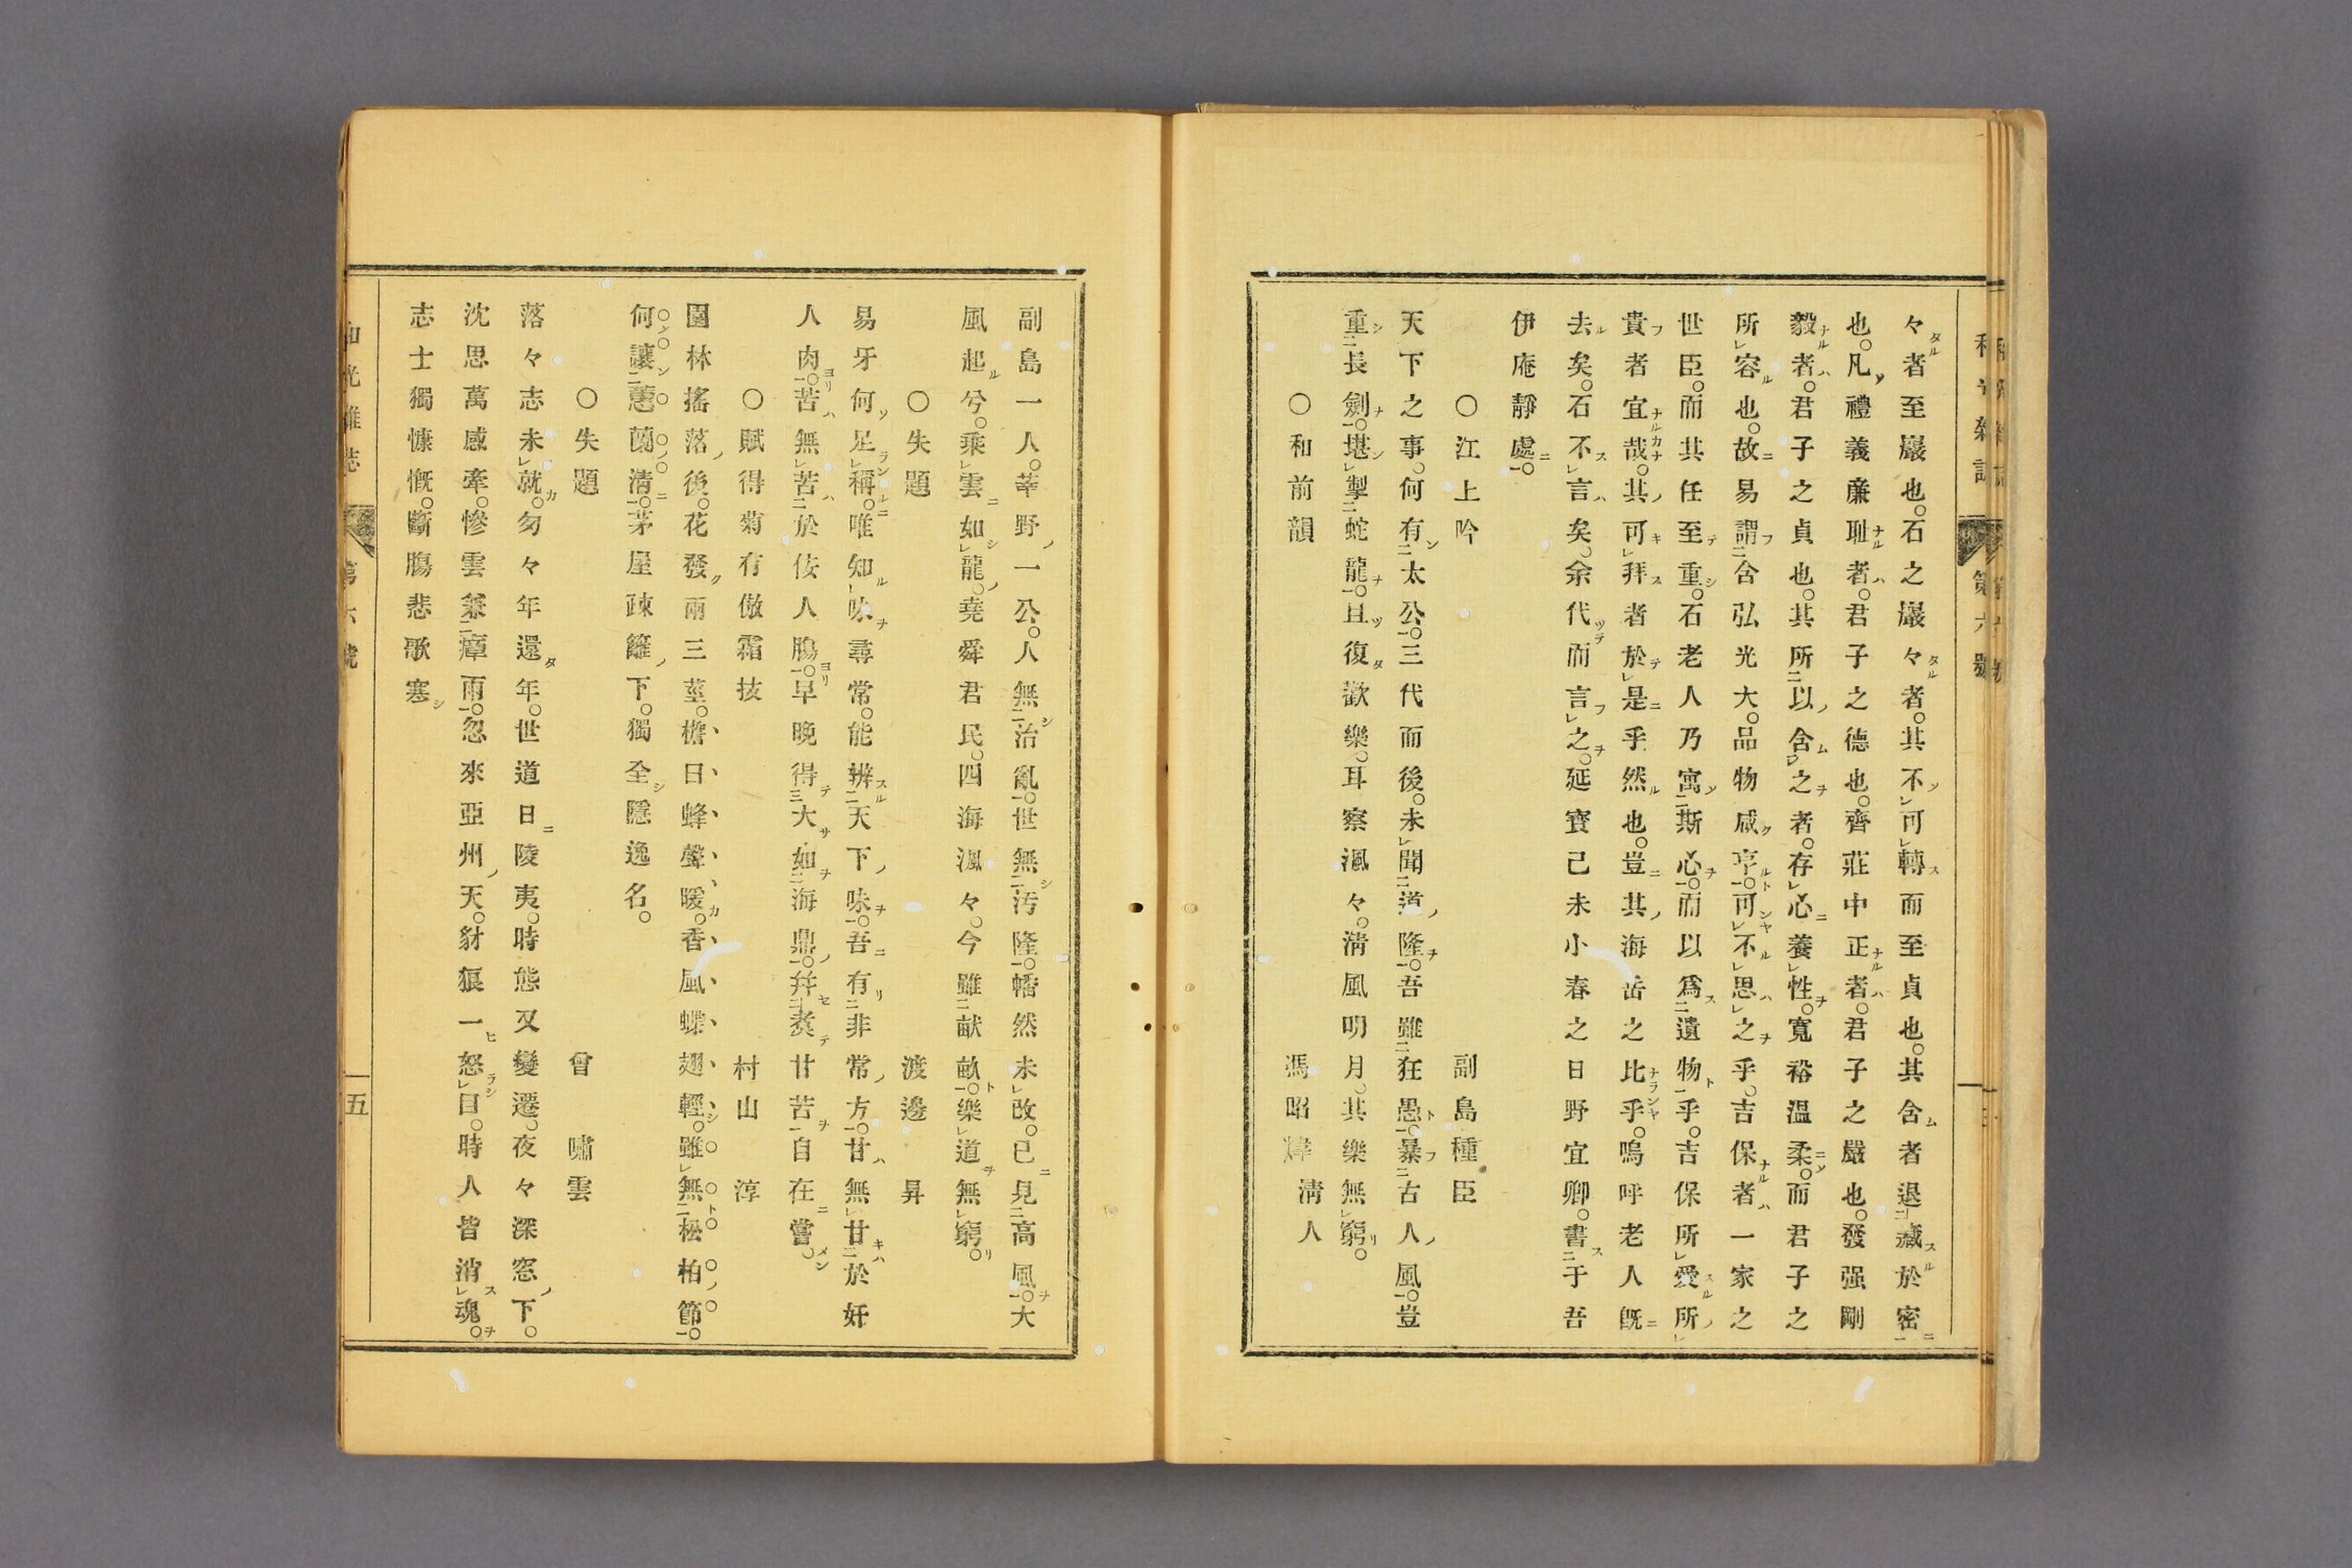 々者至巖也。石之巖々者。其不可轉而至貞也。其含者退藏於密
也。凡禮義廉耻者。君子之德也。齊莊中正者。君子之嚴也。發强剛
毅者。君子之貞也。其所以含之者。存心養性。寬裕溫柔。而君子之
所容也。故易謂含弘光大。品物咸亨。可不思之乎。吉保者一家之
世臣。而其任至重。石老人乃寓斯心。而以爲遺物乎。吉保所愛所
貴者宜哉。其可拜者於是乎然也。豈其海岳之比乎。嗚呼老人既
去矣。石不言矣。余代而言之。延寳己未小春之日野宜卿。書于吾
伊庵靜處。
〇江上吟 副島種臣
天下之事。何有太公。三代而後。未聞道隆。吾雖狂愚。暴古人風。豈
重長劍。堪掣蛇龍。且復歡樂。耳察渢々。淸風明月。其樂無窮。
〇和前韻 馮昭煒 淸人
副島一人。莘野一公。人無治亂。世無汚隆。幡然未改。已見高風。大
風起兮。乘雲如龍。堯舜君民。四海渢々。今雖畎畝。樂道無窮。
〇失題 渡邊昇
易牙何足稱。唯知味尋常。能辨天下味。吾有非常方。甘無甘於奸
人肉。苦無苦於佞人膓。早晚得大如海鼎。幷煑甘苦自在嘗。
〇賦得菊有傲霜技 村山淳
園林搖落後。花發兩三莖。檐日蜂聲暖。香風蝶翅輕。雖無松柏節。
何讓蕙蘭清。茅屋疎籬下。獨全隱逸名。
〇失題 曾嘯雲
落々志未就。匆々年還年。世道日陵夷。時態又變遷。夜々深窓下。
沈思萬感牽。慘雲兼瘴雨。忽來亞州天。豺狼一怒日。時人皆消魂。
志士獨慷慨。斷膓悲歌寒
第六號
五